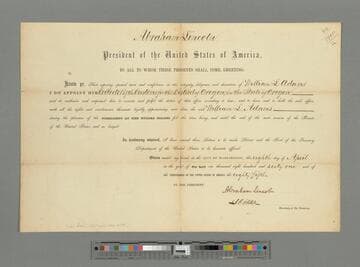 Abraham Lincoln
President of the United States of America,
TO ALL TO WHOM THESE PRESENTS SHALL COME, GREETING:
Know ye, That reposing special trust and confidence in the integrity, diligence and discretion of William L. Adams
I DO APPOINT HIM Collector of Customs for the District of Oregon in the State of Oregon
and do authorize and empower him to execute and fulfil the duties of that office according to law; and to have and to hold the said office,
with all the rights and emoluments thereunto legally appertaining, unto him, the said William L. Adams
during the pleasure of the PRESIDENT OF THE UNITED STATES for the time being, and until the end of the next session of the Senate
of the United States and no longer.
In testimony whereof, I have caused these Letters to be made Patent and the Seal of the Treasury
Department of the United States to be hereunto affixed.
Given under my hand at the CITY OF WASHINGTON, the eighth day of April
in the year of our Lord one thousand eight hundred and sixty one and of
THE INDEPENDENCE OF THE UNITED STATES OF AMERICA the eighty fifth
BY THE PRESIDENT
Abraham Lincoln
Secretary of the Treasury.